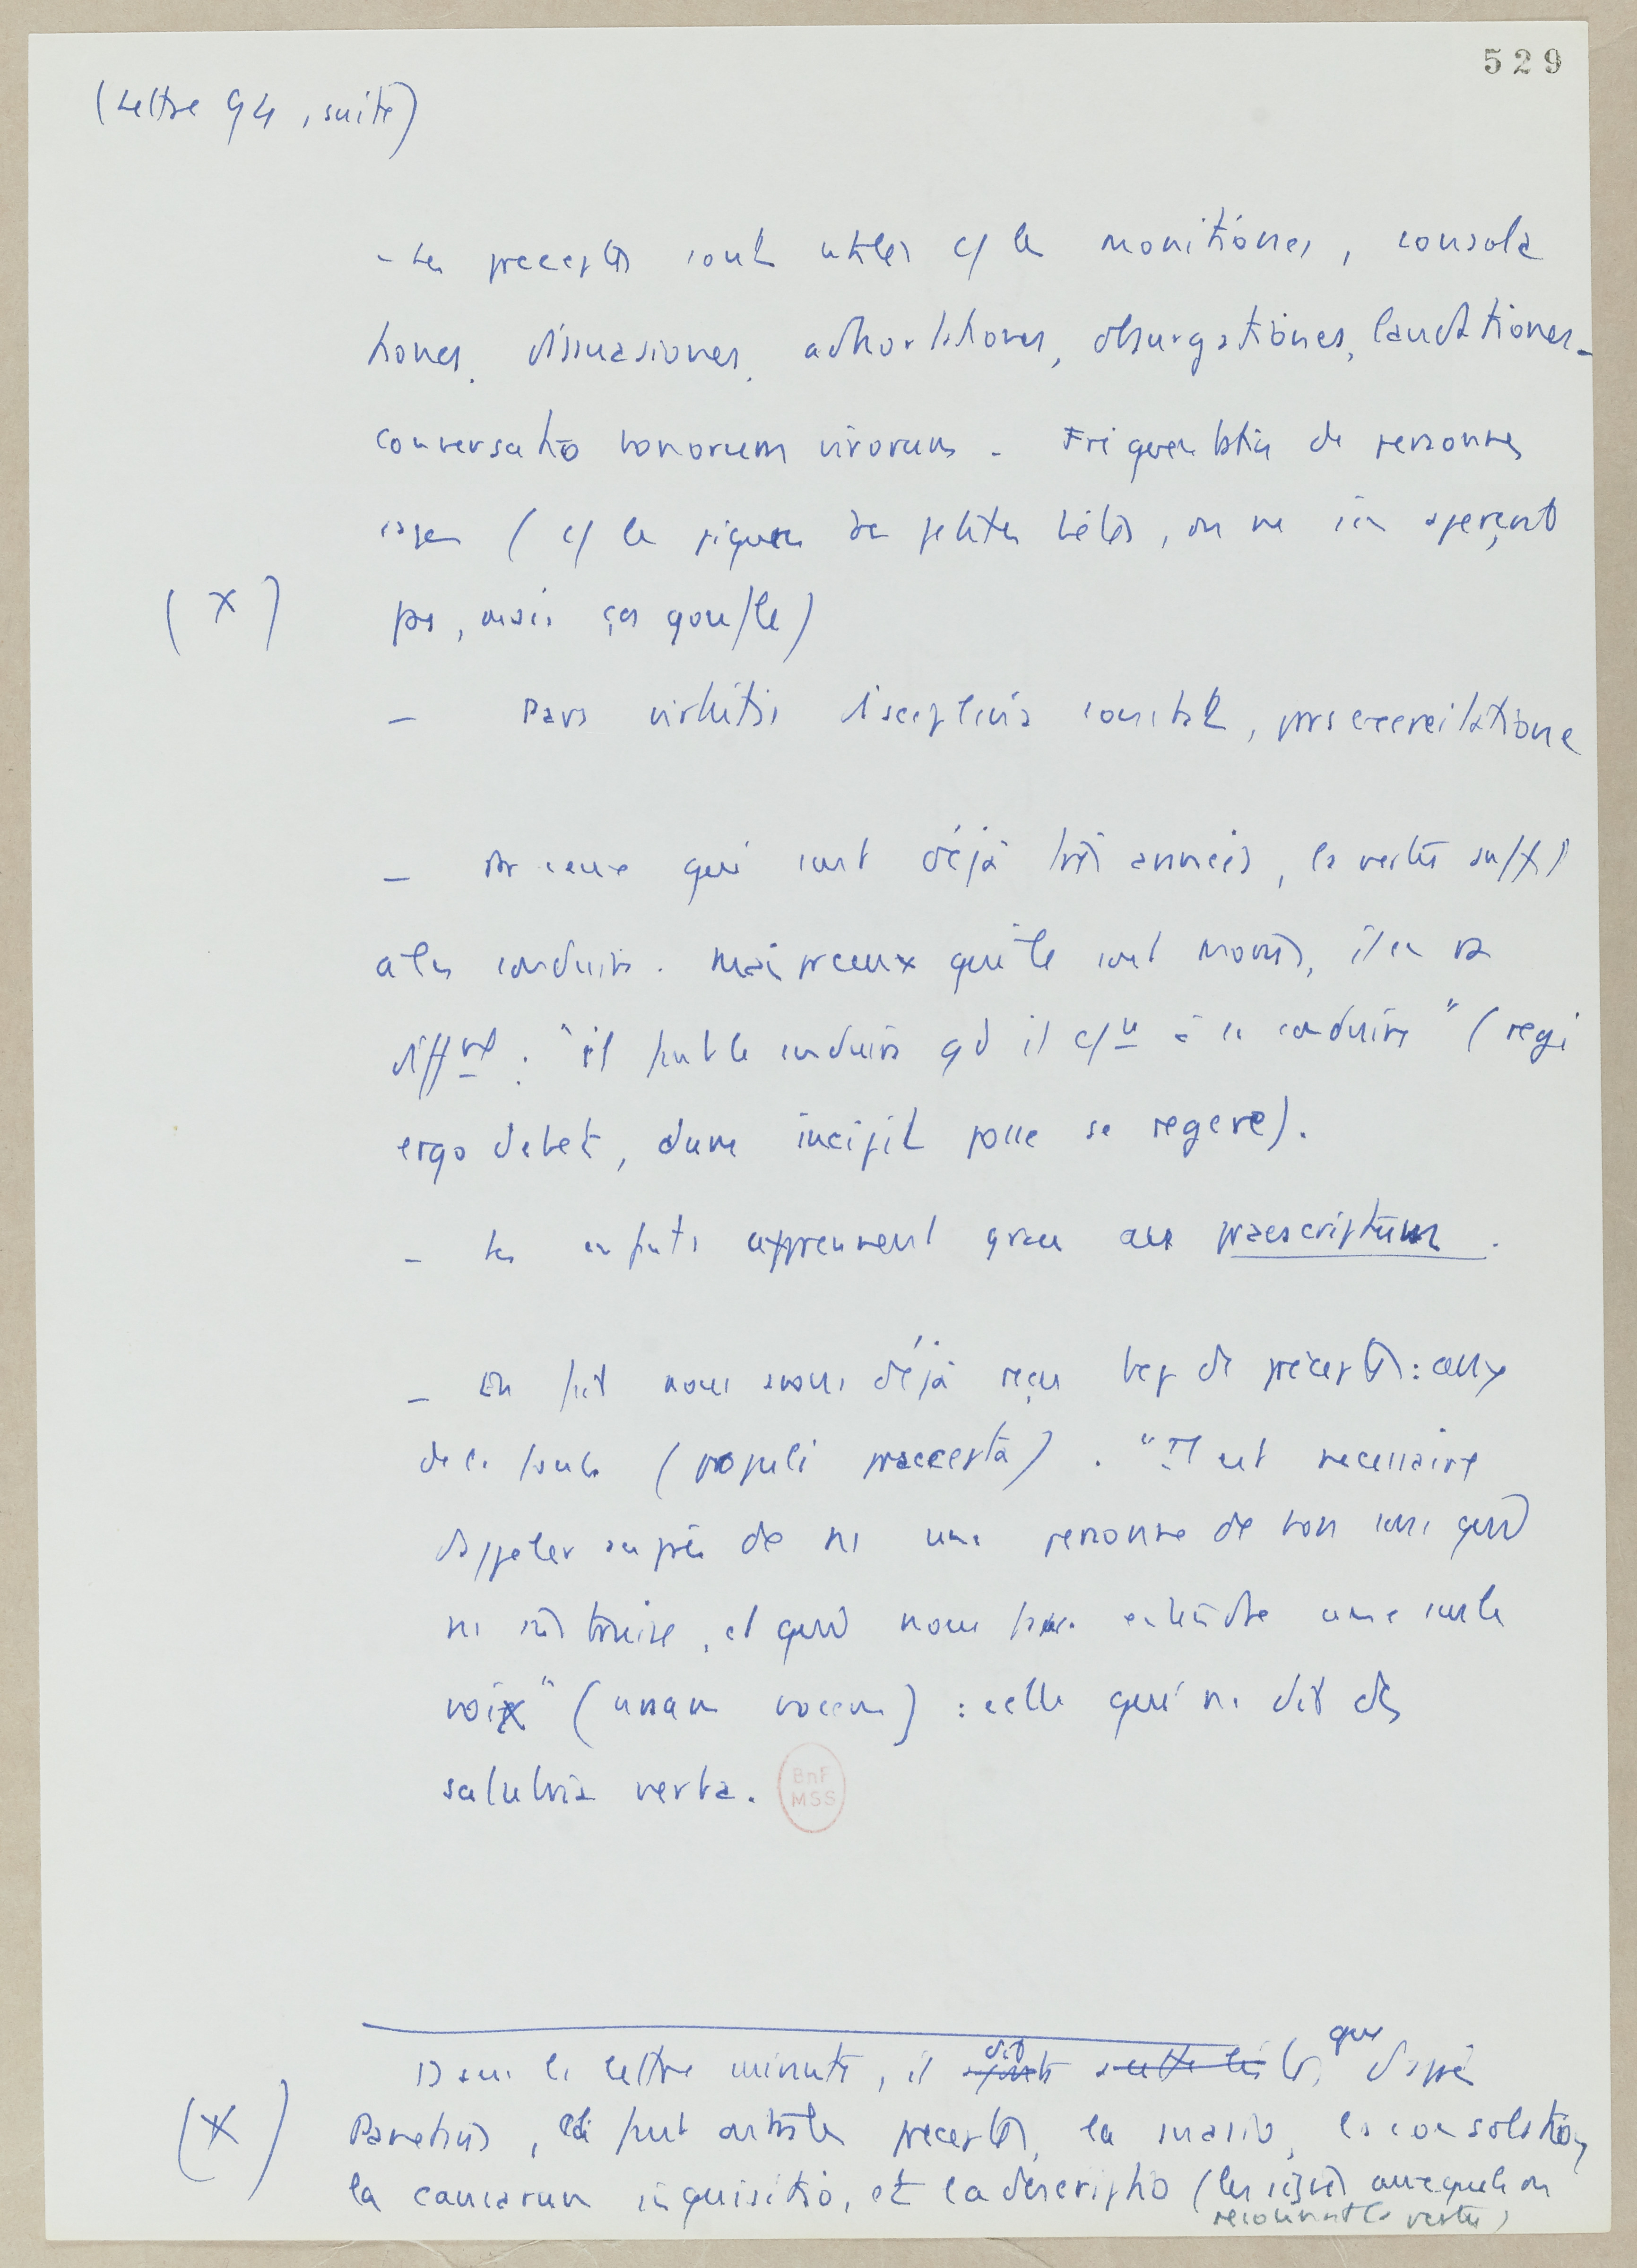 529
(Lettre 94, suite)
- Les preceptes sont utiles c/ les monitiones, consola
tiones, dissuasiones, adhortationes, obsurgationes, laudationes -
conversatio bonorum virorum - Fréquentation de personnes
sages (c/ la piqure de petites bêtes, on ne s'en aperçoit
(X) pas, mais ça gonfle)
- Pars virtutis disciplina constat, pars exercitatione
- Pr ceux qui sont déjà très avancés, la vertu suffit
à les conduire. Mais pr ceux qui le sont moins, il en va
differt : "il faut le conduire qd il c/ce à se conduire" (regi
ergo debet, dum incipit posse se regere).
- Les enfants apprennent grace au praescriptum.
- En fait nous avons déjà reçu bcp de préceptes : ceux
de la foule (populi praecepta). "Il est necessaire
d'appeler auprès de ns une personne de bon sens qui
ns instruise, et qui nous fasse entendre une seule
voix" (unam vocem) : celle qui ns dit des
salubria verba.
BnF
MSS
Dans la lettre suivante, il dit que d'après
(X) Panetius, il faut outre les preceptes, la suasio, la consolation,
la causarum inquisitio, et la descriptio (les signes auxquels on
reconnaît la vertu)